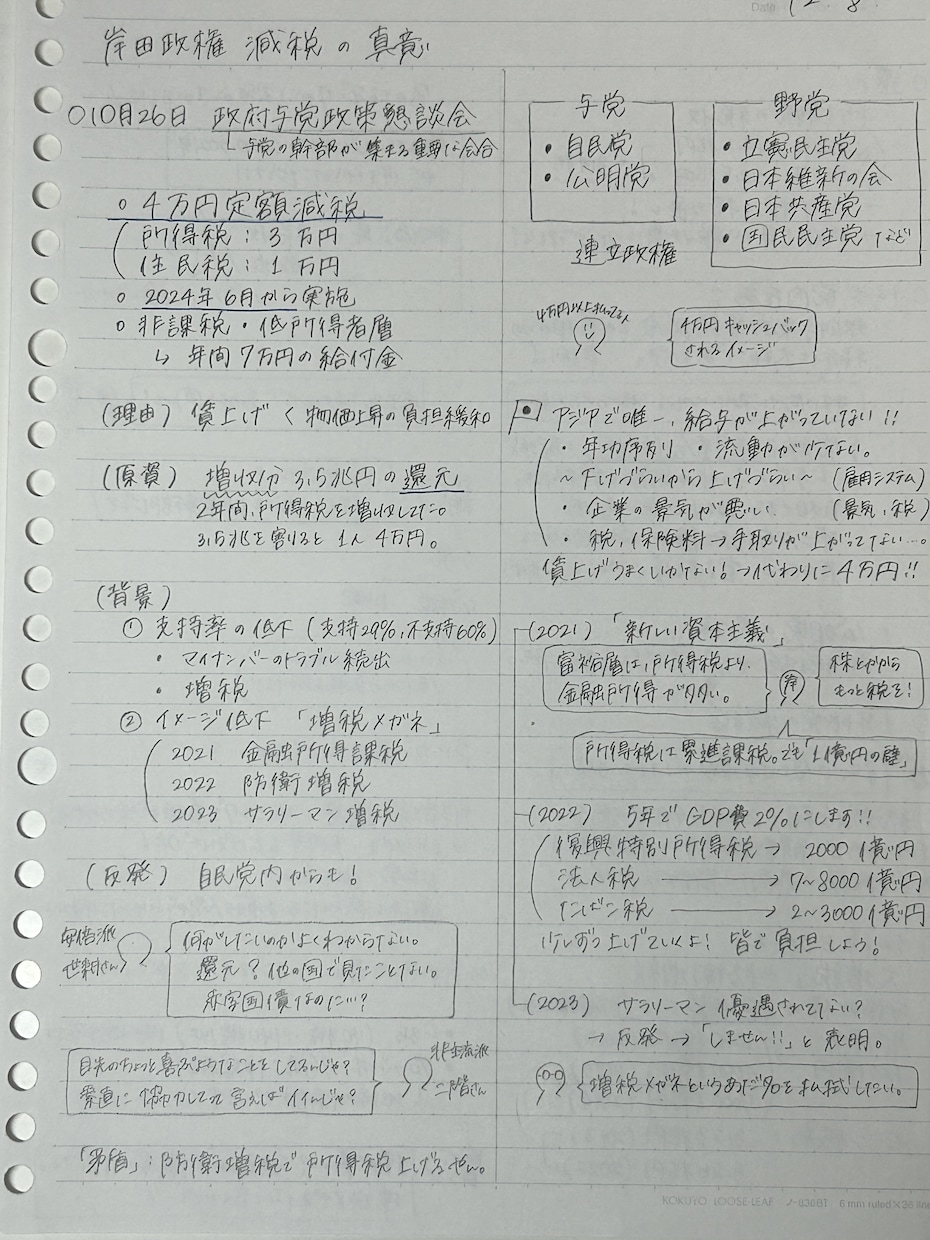 Date 12. 8.
岸田政権 減税の真意
○10月26日 政府与党政策懇談会
└ 与党の幹部が集まる重要な会合
○ 4万円定額減税
所得税：3万円
住民税：1万円
○ 2024年6月から実施
○ 非課税・低所得者層
↳ 年間7万円の給付金
(理由) 賃上げ < 物価上昇の負担緩和
(原資) 増収分 3.5兆円の還元
2年間、所得税を増収してた。
3.5兆を割ると 1人 4万円。
(背景)
① 支持率の低下 (支持29%、不支持60%)
・ マイナンバーのトラブル続出
・ 増税
② イメージ低下 「増税メガネ」
2021 金融所得課税
2022 防衛増税
2023 サラリーマン増税
(反発) 自民党内からも!
安倍派
世耕さん
何がしたいのかよくわからない。
還元? 他の国で見たことない。
赤字国債なのに…?
目先のちょっと喜ぶようなことをしてるんじゃ?
素直に協力してって言えばイイんじゃ?
非主流派
二階さん
「矛盾」：防衛増税で所得税上げるやん。
与党
・ 自民党
・ 公明党
連立政権
野党
・ 立憲民主党
・ 日本維新の会
・ 日本共産党
・ 国民民主党 など
4万円以上払ってる人
4万円キャッシュバック
されるイメージ
アジアで唯一、給与が上がっていない!!
・ 年功序列 ・ 流動が少ない。
~下げづらいから上げづらい~ (雇用システム)
・ 企業の景気が悪い (景気、税)
・ 税、保険料→手取りが上がってない…。
賃上げうまくいかない! →代わりに4万円!!
(2021) 「新しい資本主義」
富裕層は、所得税より、
金融所得が多い。
岸
株とかから
もっと税を!
所得税は累進課税。でも「1億円の壁」
(2022) 5年でGDP費2%にします!!
復興特別所得税 → 2000億円
法人税 → 7~8000億円
たばこ税 → 2~3000億円
少しずつ上げていくよ! 皆で負担しよう!
(2023) サラリーマン優遇されてない?
→ 反発 →「しません!!」と表明。
増税メガネというあだ名を払拭したい。
KOKUYO LOOSE-LEAF ノ-836BT 6 mm ruled×36 line